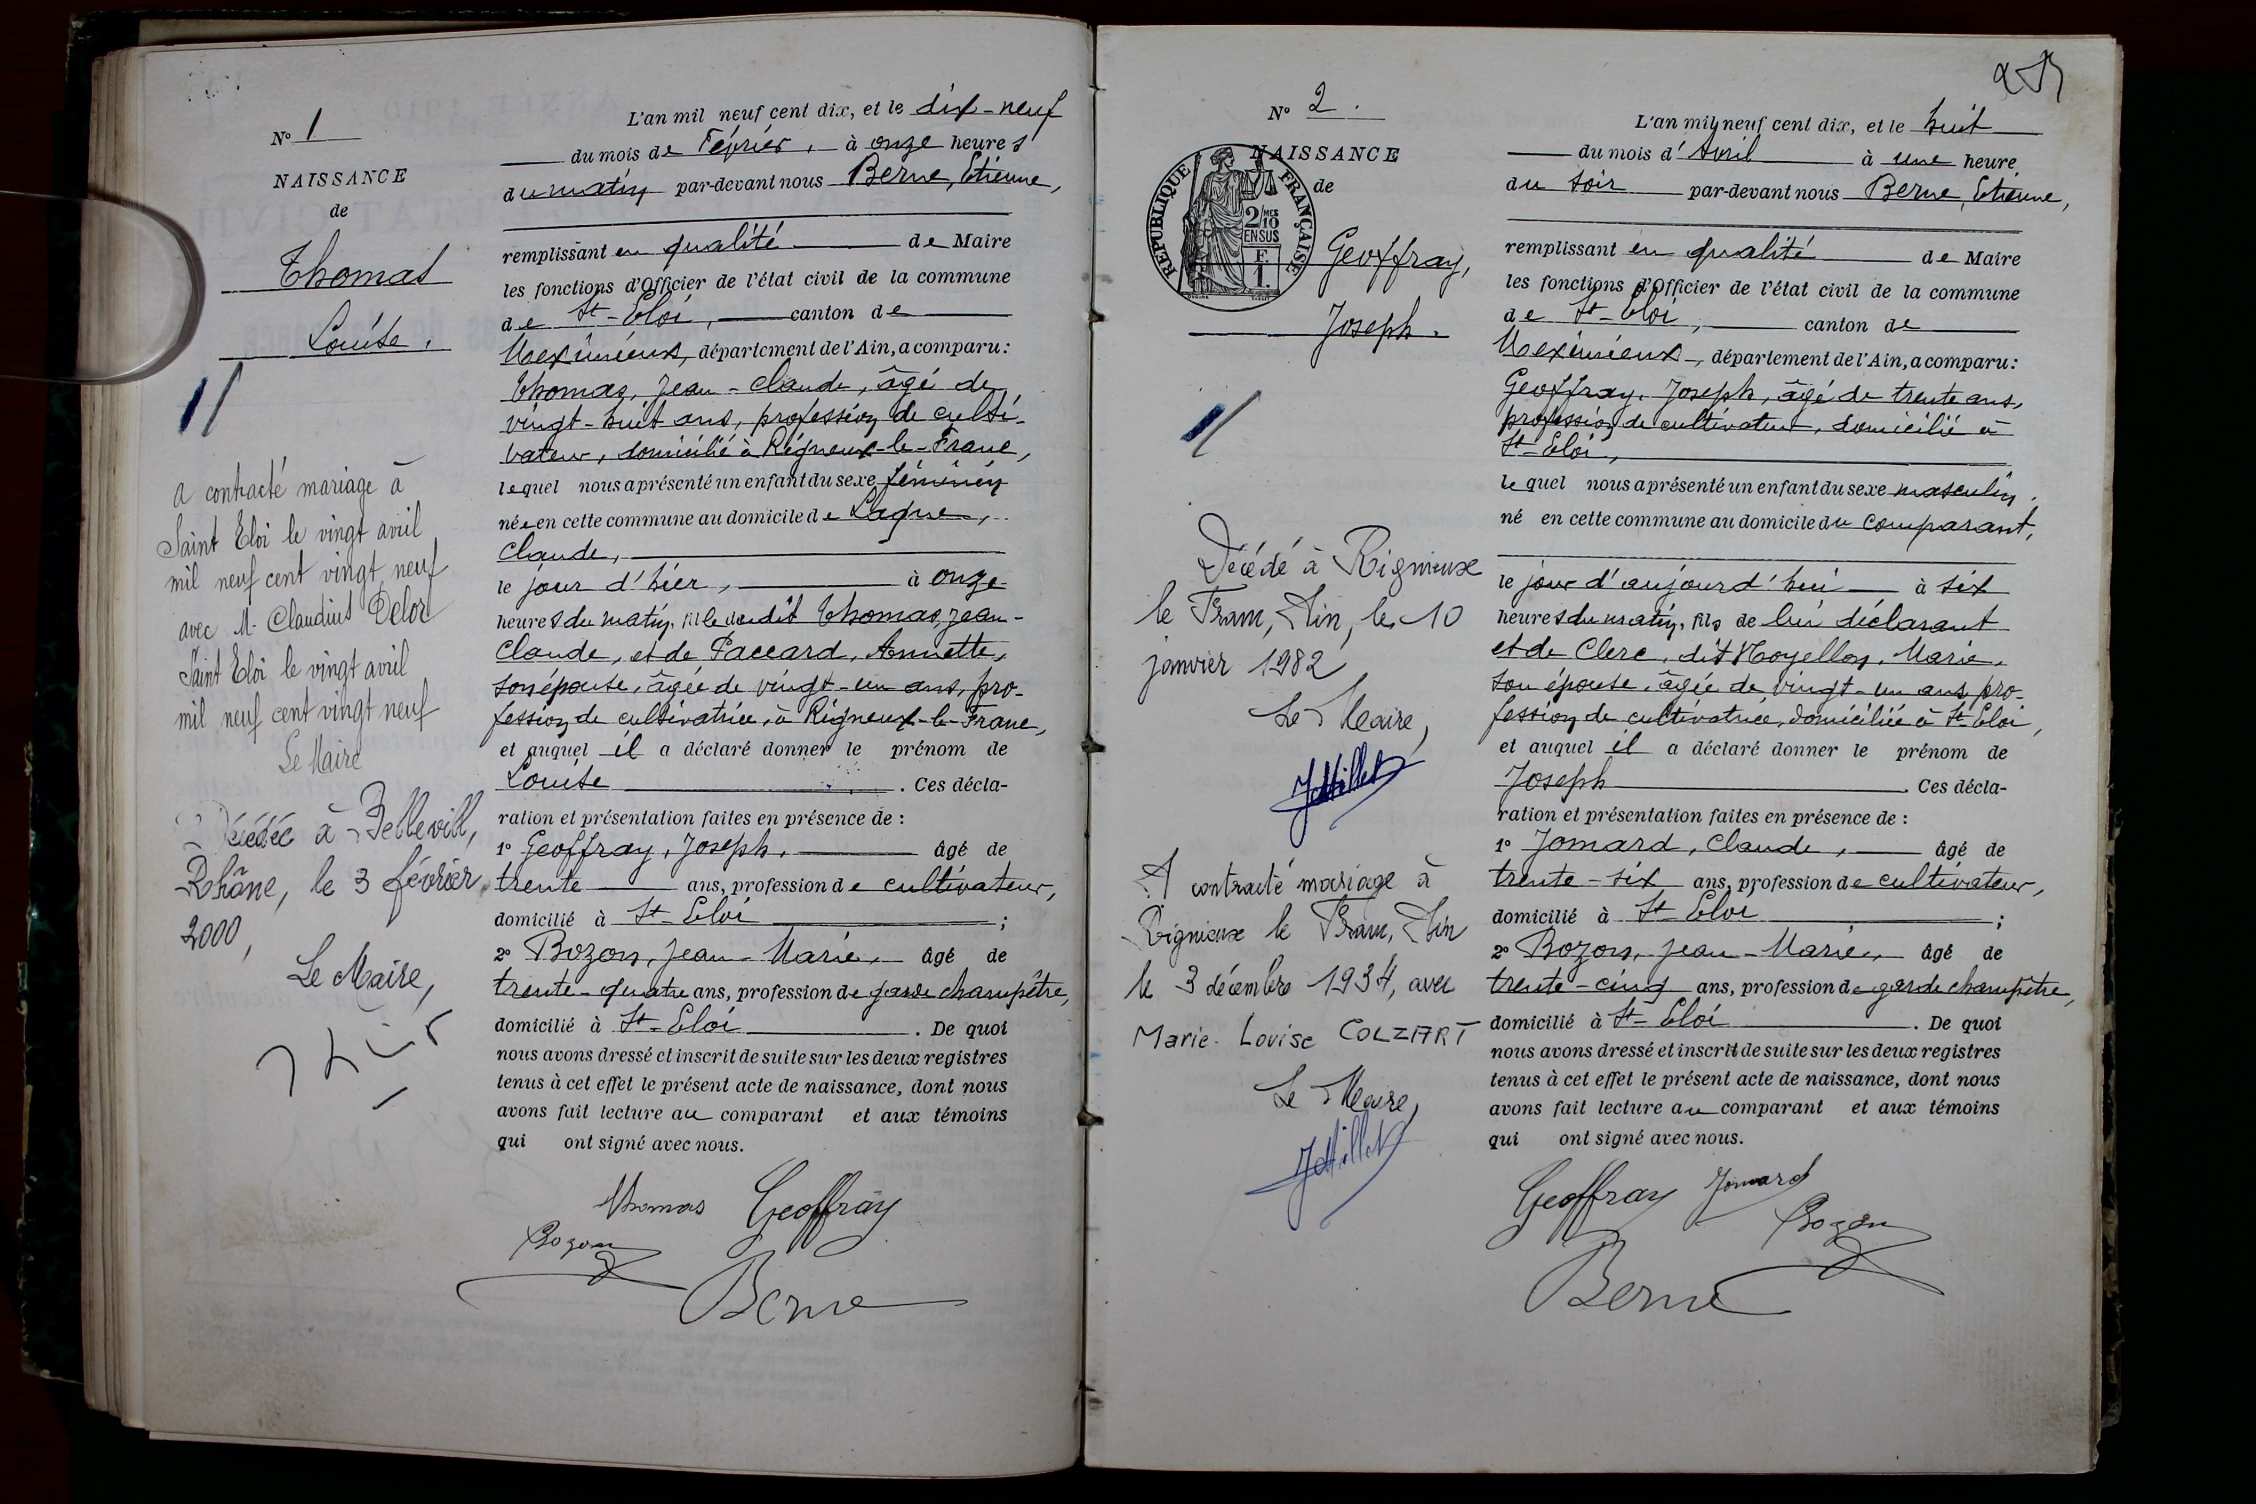 N° 1
NAISSANCE
de
Thomas
Louise.
a contracté mariage à
Saint Eloi le vingt avril
mil neuf cent vingt neuf
avec M. Claudius Delor
Saint Eloi le vingt avril
mil neuf cent vingt neuf
Le Maire
Décédée à Belleville,
Rhône, le 3 février
2000,
Le Maire,
L'an mil neuf cent dix, et le dix-neuf
du mois de Février, à onze heures
du matin par-devant nous Berne, Etienne,
remplissant en qualité de Maire
les fonctions d'Officier de l'état civil de la commune
de St-Eloi, canton de
Meximieux, département de l'Ain, a comparu:
Thomas, Jean-Claude, âgé de
vingt-huit ans, profession de culti-
vateur, domicilié à Rigneux-le-Franc,
lequel nous a présenté un enfant du sexe féminin
née en cette commune au domicile de Lagne,
Claude,
le jour d'hier, à onze
heures du matin, fille dudit Thomas, Jean-
Claude, et de Paccard, Annette,
son épouse, âgée de vingt-un ans, pro-
fession de cultivatrice, à Rigneux-le-Franc,
et auquel il a déclaré donner le prénom de
Louise . Ces décla-
ration et présentation faites en présence de :
1° Geoffray, Joseph, âgé de
trente ans, profession de cultivateur,
domicilié à St-Eloi ;
2° Bozon, Jean-Marie, âgé de
trente-quatre ans, profession de garde champêtre,
domicilié à St-Eloi . De quoi
nous avons dressé et inscrit de suite sur les deux registres
tenus à cet effet le présent acte de naissance, dont nous
avons fait lecture au comparant et aux témoins
qui ont signé avec nous.
Thomas Geoffray
Bozon
Berne
N° 2.
NAISSANCE
de
REPUBLIQUE FRANÇAISE
2/10 MES
EN SUS
F.
1.
Geoffray,
Joseph.
Décédé à Rignieux
le Franc, Ain, le 10
janvier 1982
Le Maire,
JMillet
A contracté mariage à
Rignieux le Franc, Ain
le 3 décembre 1934, avec
Marie-Louise COLZART
Le Maire,
JMillet
L'an mil neuf cent dix, et le huit
du mois d'Avril à une heure
du soir par-devant nous Berne, Etienne,
remplissant en qualité de Maire
les fonctions d'Officier de l'état civil de la commune
de St-Eloi, canton de
Meximieux, département de l'Ain, a comparu:
Geoffray, Joseph, âgé de trente ans,
profession de cultivateur, domicilié à
St-Eloi,
lequel nous a présenté un enfant du sexe masculin.
né en cette commune au domicile du comparant,
le jour d'aujourd'hui à six
heures du matin, fils de lui déclarant
et de Clerc, dit Noyellon, Marie,
son épouse, âgée de vingt-un ans, pro-
fession de cultivatrice, domiciliée à St-Eloi,
et auquel il a déclaré donner le prénom de
Joseph . Ces décla-
ration et présentation faites en présence de :
1° Jomard, Claude, âgé de
trente-six ans, profession de cultivateur,
domicilié à St-Eloi ;
2° Bozon, Jean-Marie, âgé de
trente-cinq ans, profession de garde champêtre,
domicilié à St-Eloi . De quoi
nous avons dressé et inscrit de suite sur les deux registres
tenus à cet effet le présent acte de naissance, dont nous
avons fait lecture au comparant et aux témoins
qui ont signé avec nous.
Geoffray Jomard
Bozon
Berne